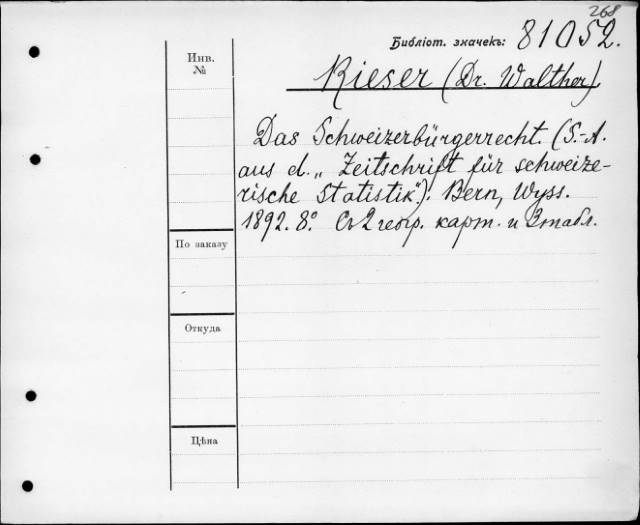 268
Библіот. значекъ: 81052.
Инв.
№
Rieser (Dr. Walther).
Das Schweizerbürgerrecht. (S.-A.
aus d. „Zeitschrift für schweize-
rische Statistik"). Bern, Wyss.
1892. 8°. Съ 2 геогр. карт. и 3 табл.
По заказу
Откуда
Цѣна